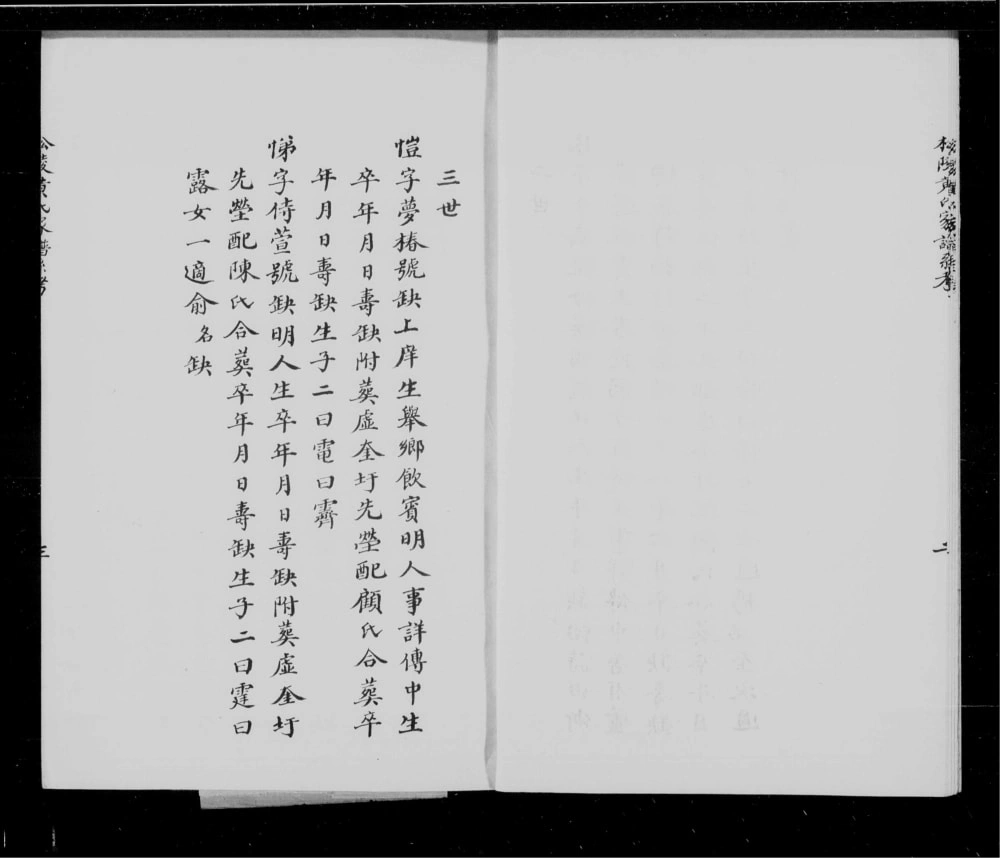 三世
愷字夢椿號缺上庠生舉鄉飲賓明人事詳傳中生
卒年月日壽缺附葬虛奎圩先塋配顧氏合葬卒
年月日壽缺生子二曰電曰霽
悌字侍萱號缺明人生卒年月日壽缺附葬虛奎圩
先塋配陳氏合葬卒年月日壽缺生子二曰霆曰
露女一適俞名缺
三
二